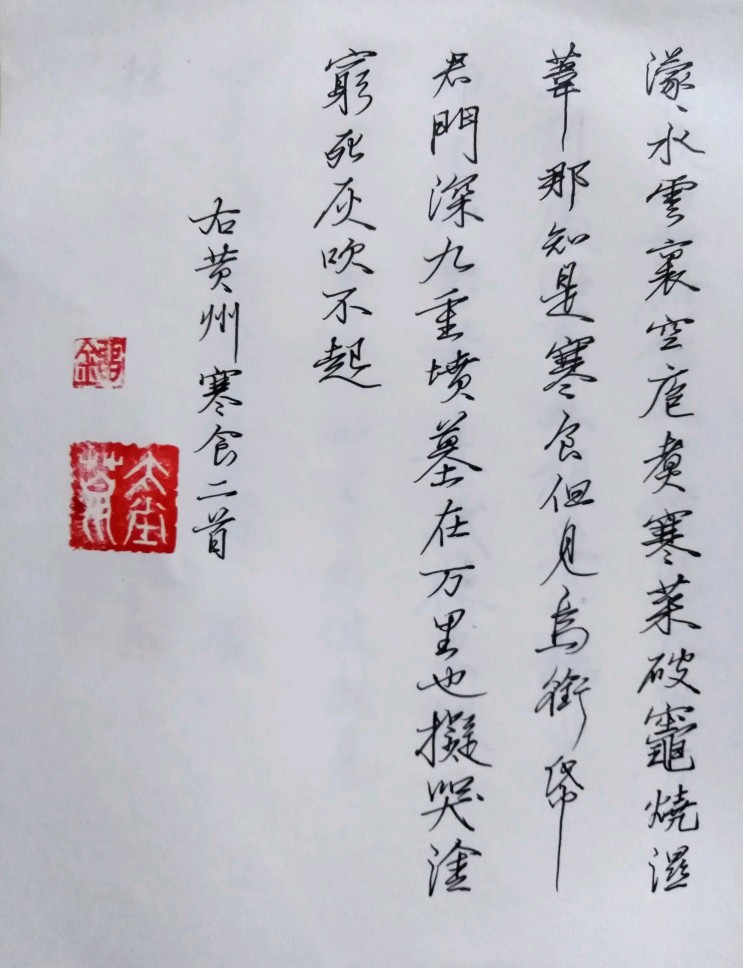 濛〻水雲裏空庖煮寒菜破竈燒濕
葦那知是寒食但見烏銜帋
君門深九重墳墓在万里也擬哭塗
窮死灰吹不起
右黄州寒食二首